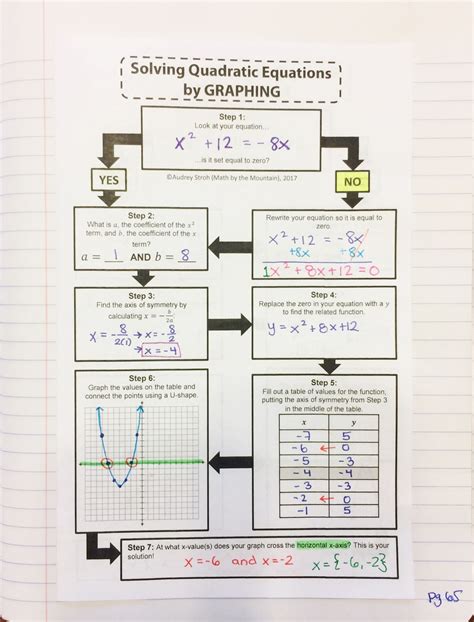 Solving Quadratic Equations
by GRAPHING
Step 1:
Look at your equation...
x² + 12 = -8x
...is it set equal to zero?
YES
©Audrey Stroh (Math by the Mountain), 2017
NO
Step 2:
What is a, the coefficient of the x²
term, and b, the coefficient of the x
term?
a = 1 AND b = 8
Rewrite your equation so it is equal to
zero.
x² + 12 = -8x
+8x +8x
1x² + 8x + 12 = 0
Step 3:
Find the axis of symmetry by
calculating x = -b/2a
x = -8/2(1) → x = -8/2
→ x = -4
Step 4:
Replace the zero in your equation with a y
to find the related function.
y = x² + 8x + 12
Step 6:
Graph the values on the table and
connect the points using a U-shape.
Step 5:
Fill out a table of values for the function,
putting the axis of symmetry from Step 3
in the middle of the table.
x y
-7 5
-6 ← 0
-5 -3
-4 -4
-3 -3
-2 ← 0
-1 5
Step 7: At what x-value(s) does your graph cross the horizontal x-axis? This is your
solution!
x = -6 and x = -2 x = {-6, -2}
Pg 65